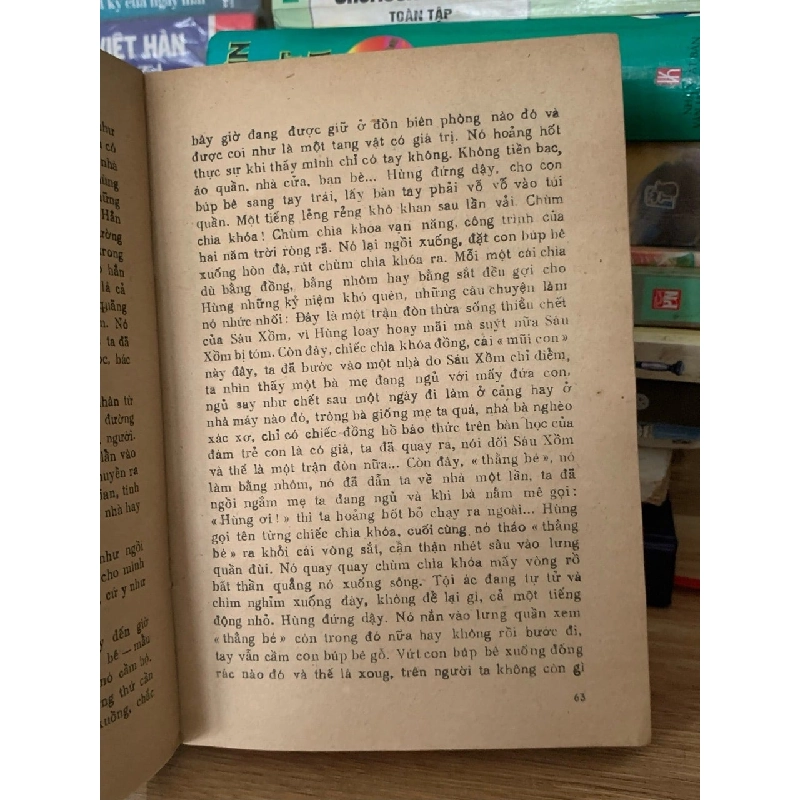 kỷ của ngày mai
VIỆT HÀN
TOÀN TẬP
như
có
nhà
năng
những
Hẳn
đường
trong
hẳn
là cả
quãng
n. Nó
ta đã
c, bác
hân từ
đường
người.
lần vào
uyên ra
an, tính
nhà hay
như ngồi
cho mình
, cử y như
y đến giờ
bê — mẫu
nó cầm bó.
ng thứ cần
xuống, chắc
bây giờ đang được giữ ở đồn biên phòng nào đó và
được coi như là một tang vật có giá trị. Nó hoảng hốt
thực sự khi thấy mình chỉ có tay không. Không tiền bạc,
áo quần, nhà cửa, bạn bè... Hùng đứng dậy, cho con
búp bê sang tay trái, lấy bàn tay phải vỗ vỗ vào túi
quần. Một tiếng lẻng rẻng khô khan sau lần vải. Chùm
chìa khóa! Chùm chìa khoa vạn năng, công trình của
hai năm trời ròng rã. Nó lại ngồi xuống, đặt con búp bê
xuống hòn đá, rút chùm chìa khóa ra. Mỗi một cái chìa
dù bằng đồng, bằng nhôm hay bằng sắt đều gợi cho
Hùng những kỷ niệm khó quên, những câu chuyện làm
nó nhức nhối: Đây là một trận đòn thừa sống thiếu chết
của Sáu Xồm, vì Hùng loay hoay mãi mà suýt nữa Sáu
Xồm bị tóm. Còn đây, chiếc chìa khóa đồng, cái « mũi con »
này đây, ta đã bước vào một nhà do Sáu Xồm chỉ điểm,
ta nhìn thấy một bà mẹ đang ngủ với mấy đứa con.
ngủ say như chết sau một ngày đi làm ở cảng hay ở
nhà máy nào đó, trông bà giống mẹ ta quá, nhà bà nghèo
xác xơ, chỉ có chiếc đồng hồ báo thức trên bàn học của
đám trẻ con là có giá, ta đã quay ra, nói dối Sáu Xồm
và thế là một trận đòn nữa... Còn đây, « thằng bé », nó
làm bằng nhôm, nó đã dẫn ta về nhà một lần, ta đã
ngồi ngắm mẹ ta đang ngủ và khi bà nằm mê gọi:
« Hùng ơi! » thì ta hoảng hốt bỏ chạy ra ngoài... Hùng
gọi tên từng chiếc chìa khóa, cuối cùng, nó tháo « thằng
bé » ra khỏi cái vòng sắt, cẩn thận nhét sâu vào lưng
quần đùi. Nó quay quay chùm chìa khóa mấy vòng rồ
bất thần quẳng nó xuống sông. Tội ác đang tự tử và
chìm nghỉm xuống đáy, không để lại gì, cả một tiếng
động nhỏ. Hùng đứng dậy. Nó nắn vào lưng quần xem
« thằng bé » còn trong đó nữa hay không rồi bước đi,
tay vẫn cầm con búp bê gỗ. Vứt con búp bê xuống đống
rác nào đó và thế là xoug, trên người ta không còn gì
63